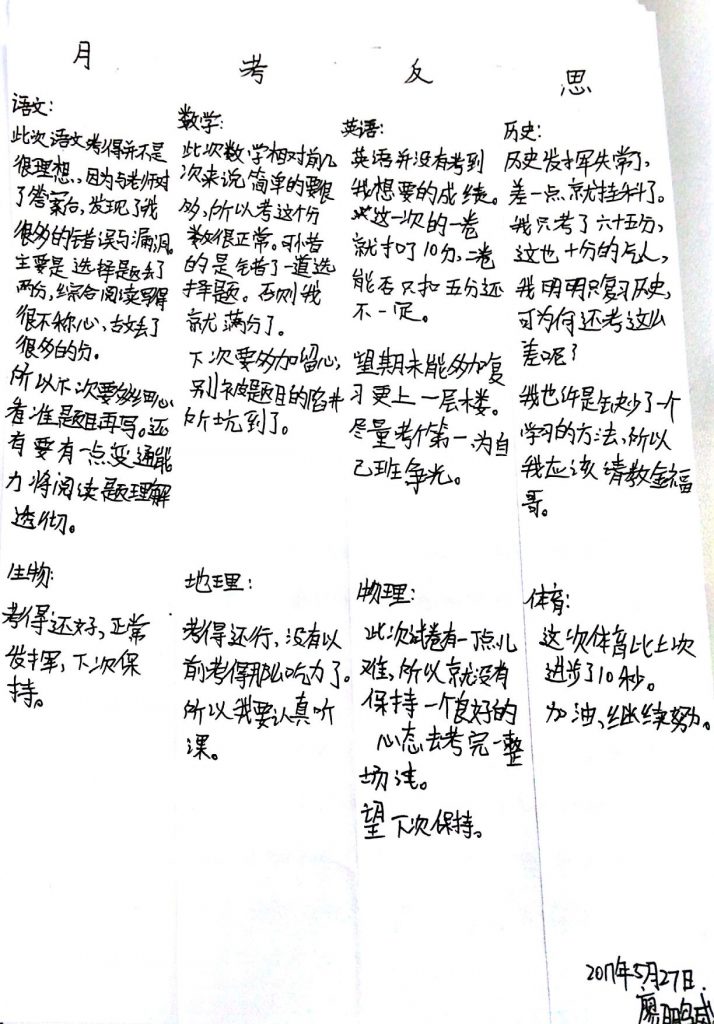 月考反思
语文:
此次语文考得并不是
很理想,因为与老师对
了答案后,发现了我
很多的错误与漏洞。
主要是选择题丢了
两分,综合阅读写得
很不称心,古文丢了
很多的分。
所以下次要够细心
看准题目再写。还
有要有一点变通能
力将阅读题理解
透彻。
数学:
此次数学相对前几
次来说简单的要很
多,所以考这个分
数很正常。可惜
的是错了一道选
择题。否则我
就满分了。
下次要多加留心,
别被题目的陷井
所坑到了。
英语:
英语并没有考到
我想要的成绩。
这一次的一卷
就扣了10分,二卷
能否只扣五分还
不一定。
望期末能多加复
习更上一层楼。
尽量考个第一,为自
己班争光。
历史:
历史发挥失常了,
差一点,就挂科了。
我只考了六十五分,
这也十分的气人,
我明明只复习历史,
可为何还考这么
差呢?
我也许是缺少了一个
学习的方法,所以
我应该请教金福
哥。
生物:
考得还好,正常
发挥,下次保
持。
地理:
考得还行,没有以
前考得那么吃力了。
所以我要认真听
课。
物理:
此次试卷有一丁点儿
难,所以就没有
保持一个良好的
心态去考完一整
场法。
望下次保持。
体育:
这次体育比上次
进步了10秒。
加油,继续努力。
2017年5月27日.
廖鹏威